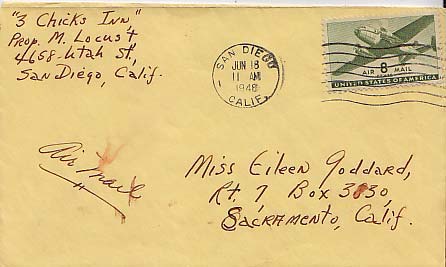 "3 Chicks Inn"
Prop. M. Locust
4658 Utah St.,
San Diego, Calif.
SAN DIEGO
JUN 18
11 AM
1948
CALIF.
AIR 8 MAIL
UNITED STATES OF AMERICA
Air Mail
Miss Eileen Goddard,
Rt. 7 Box 3830,
Sacramento, Calif.